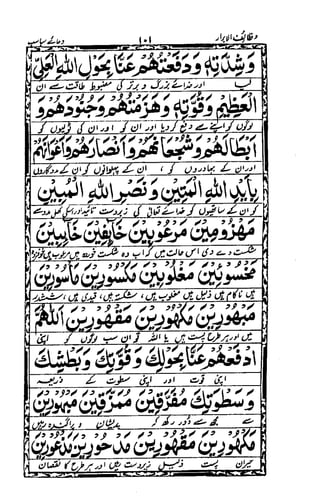 وظائف الابرار ۱۰۱ دعائے سباسب
وَشِدَّتِهٖ وَدَفَعْتُهُمْ عَنَّا بِحَوْلِ اللّٰهِ الْعَلِيِّ
خدائے بزرگ و برتر کی مضبوط طاقت سے ان
الْعَظِيْمِ وَقُوَّتِهٖ وَهَزَمْتُهُمْ وَجُنُوْدَهُمْ وَ
لوگوں کو اپنے سے دفع کردیا اور ان کو اور ان کی فوجیوں کو
اَبْطَالَهُمْ وَشُجْعَانَهُمْ وَاَنْصَارَهُمْ وَاَعْوَانَهُمْ
اور ان کے بہادروں کو، ان کے پہلوانوں کو ان کے مددگاروں
بِاَيْدِ اللّٰهِ الْمَتِيْنِ وَنَصْرِ اللّٰهِ الْمُبِيْنِ
کو ان کے ساتھیوں کو خدائے تعالیٰ کی زبردست تائید اور اسکی کھلی مدد سے
مَهْزُوْمِيْنَ مَرْعُوْبِيْنَ خَائِفِيْنَ خَائِبِيْنَ
شکست دے دی اس حالت میں کہ اب وہ شکست خوردہ ہیں مرعوب ہیں
مَخْسُوْئِيْنَ مَغْلُوْبِيْنَ مَكْسُوْرِيْنَ مَاْسُوْرِيْنَ
میں ناکام ہیں ذلیل ہیں مغلوب ہیں، شکستہ ہیں، قیدی ہیں، ششدر
مَبْهُوْرِيْنَ مَكْهُوْرِيْنَ مَقْهُوْرِيْنَ اَللّٰهُمَّ
ہیں اور ہر طرح پست ہیں یا اللہ تو ان سب لوگوں کو اپنی
ادْفَعْهُمْ عَنَّا بِحَوْلِكَ وَقُوَّتِكَ وَبَطْشِكَ
اپنی قوت اور اپنی سطوت کے ذریعہ
وَسَطْوَتِكَ مُفَرَّقِيْنَ مُمَزَّقِيْنَ مَبْهُوْرِيْنَ
سے ہم سے دور رکھ کر پریشان و پراگندہ ہوں
مَكْهُوْرِيْنَ مَقْهُوْرِيْنَ مَدْحُوْرِيْنَ مَذْعُوْرِيْنَ
حیران پست ذلیل زبردست ہیں اور ہر طرح کا نقصان